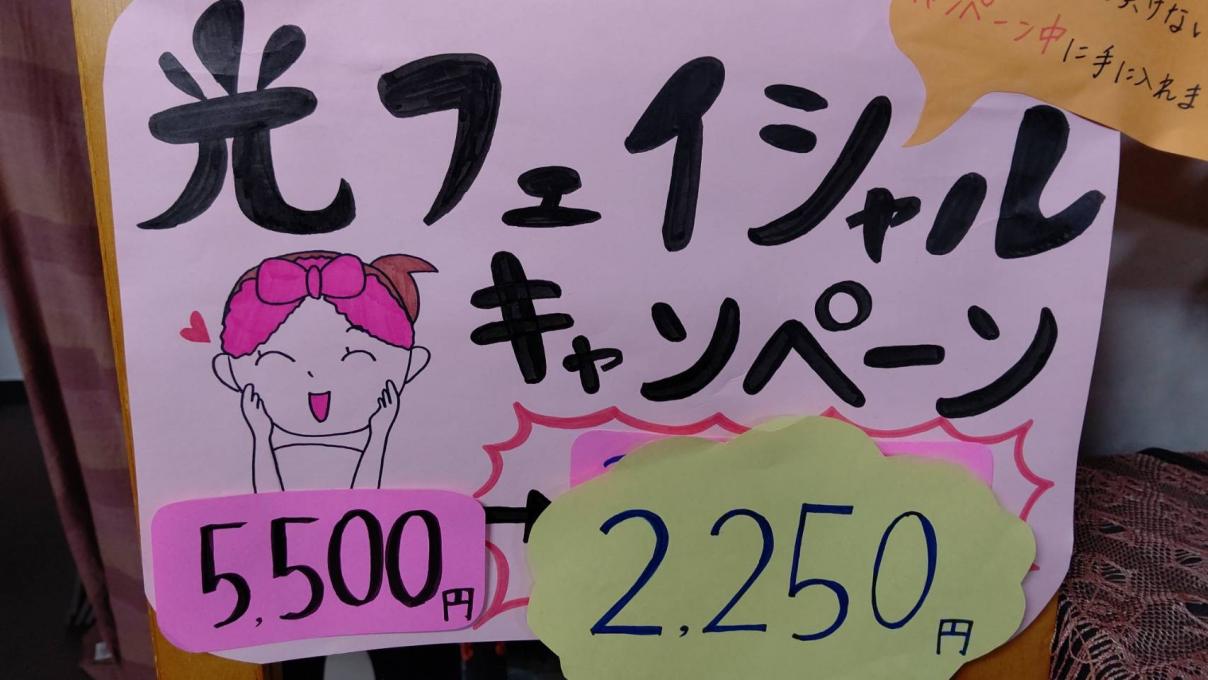 光フェイシャル
キャンペーン
ンペーン中に手に入れま
5,500円
→
2,250円